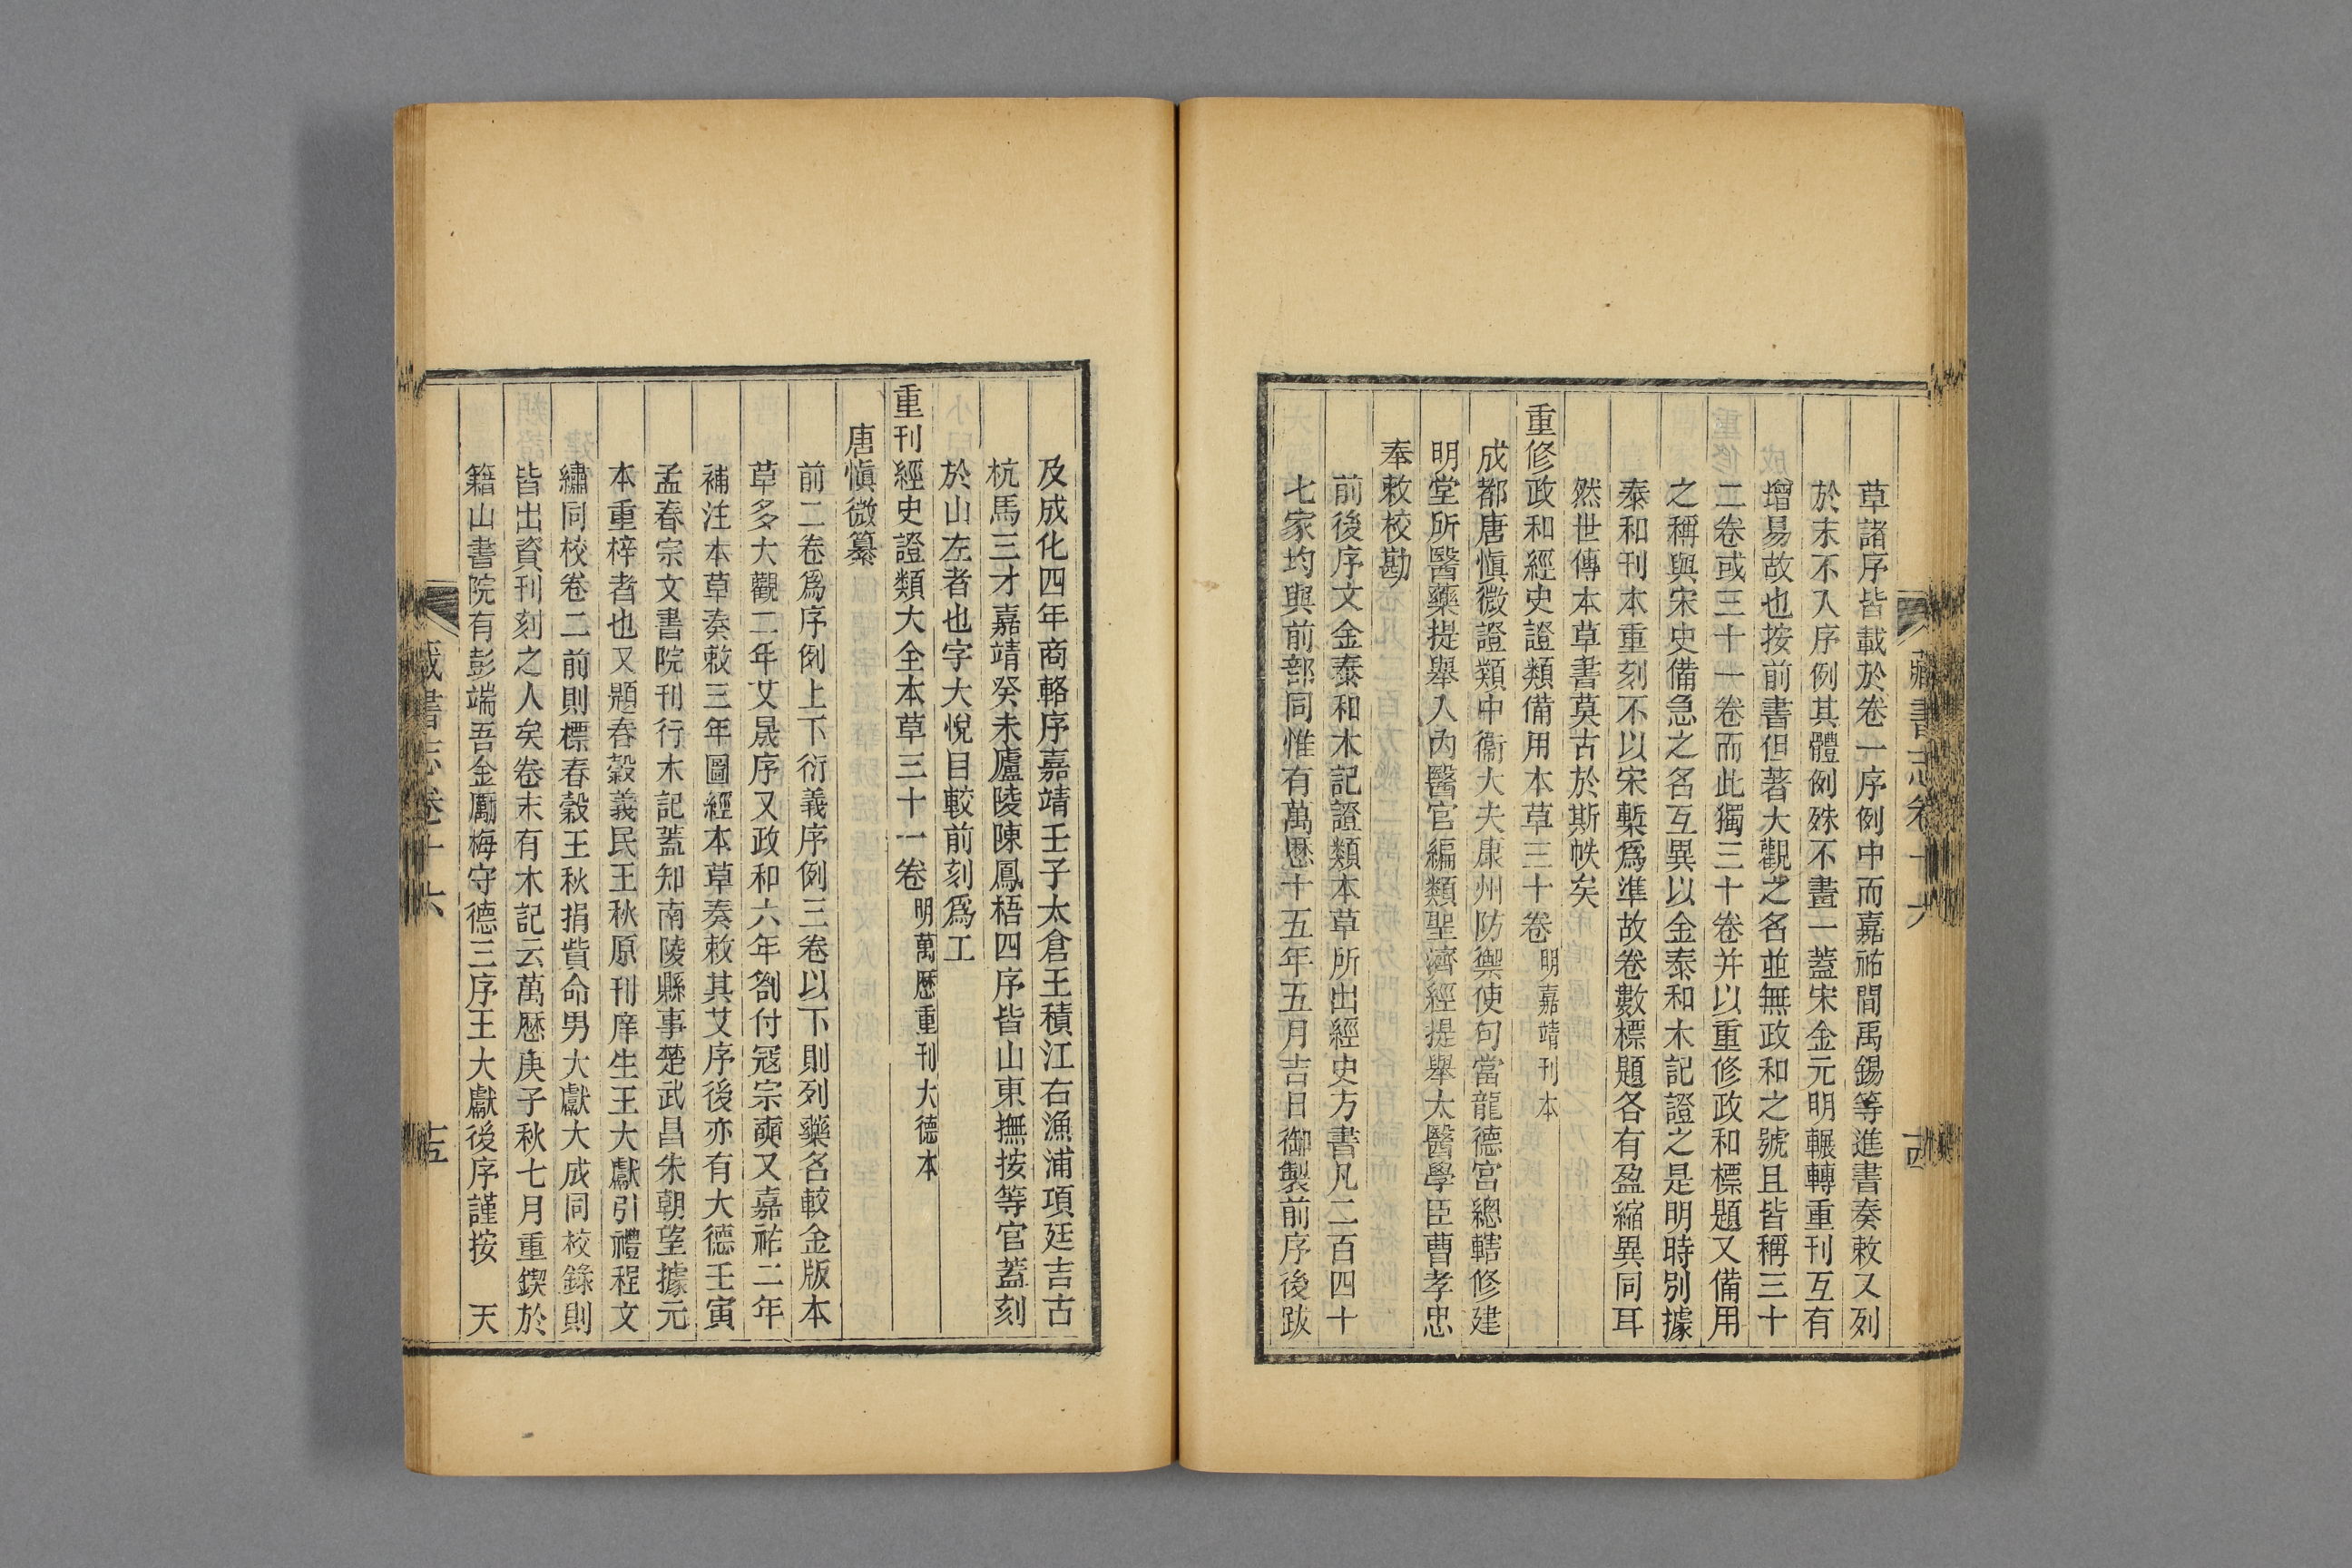 草諸序皆載於卷一序例中而嘉祐間禹錫等進書奏敕又列
於末不入序例其體例殊不畫一蓋宋金元明輾轉重刊互有
增易故也按前書但著大觀之名並無政和之號且皆稱三十
二卷或三十一卷而此獨三十卷并以重修政和標題又備用
之稱與宋史備急之名互異以金泰和木記證之是明時別據
泰和刊本重刻不以宋槧爲準故卷數標題各有盈縮異同耳
然世傳本草書莫古於斯帙矣
重修政和經史證類備用本草三十卷 明嘉靖刊本
成都唐愼微證類中衞大夫康州防禦使句當龍德宮總轄修建
明堂所醫藥提舉入內醫官編類聖濟經提舉太醫學臣曹孝忠
奉敕校勘
前後序文金泰和木記證類本草所出經史方書凡二百四十
七家均與前部同惟有萬歷十五年五月吉日御製前序後跋
及成化四年商輅序嘉靖壬子太倉王積江右漁浦項廷吉古
杭馬三才嘉靖癸未廬陵陳鳳梧四序皆山東撫按等官蓋刻
於山左者也字大悅目較前刻爲工
重刊經史證類大全本草三十一卷 明萬歷重刊大德本
唐愼微纂
前二卷爲序例上下衍義序例三卷以下則列藥名較金版本
草多大觀二年艾晟序又政和六年劄付冦宗奭又嘉祐二年
補注本草奏敕三年圖經本草奏敕其艾序後亦有大德壬寅
孟春宗文書院刊行木記蓋知南陵縣事楚武昌朱朝望據元
本重梓者也又題春穀義民王秋原刊庠生王大獻引禮程文
繡同校卷二前則標春穀王秋捐貲命男大獻大成同校錄則
皆出資刊刻之人矣卷末有木記云萬歷庚子秋七月重鍥於
籍山書院有彭端吾金勵梅守德三序王大獻後序謹按 天
藏書志卷十六
十五